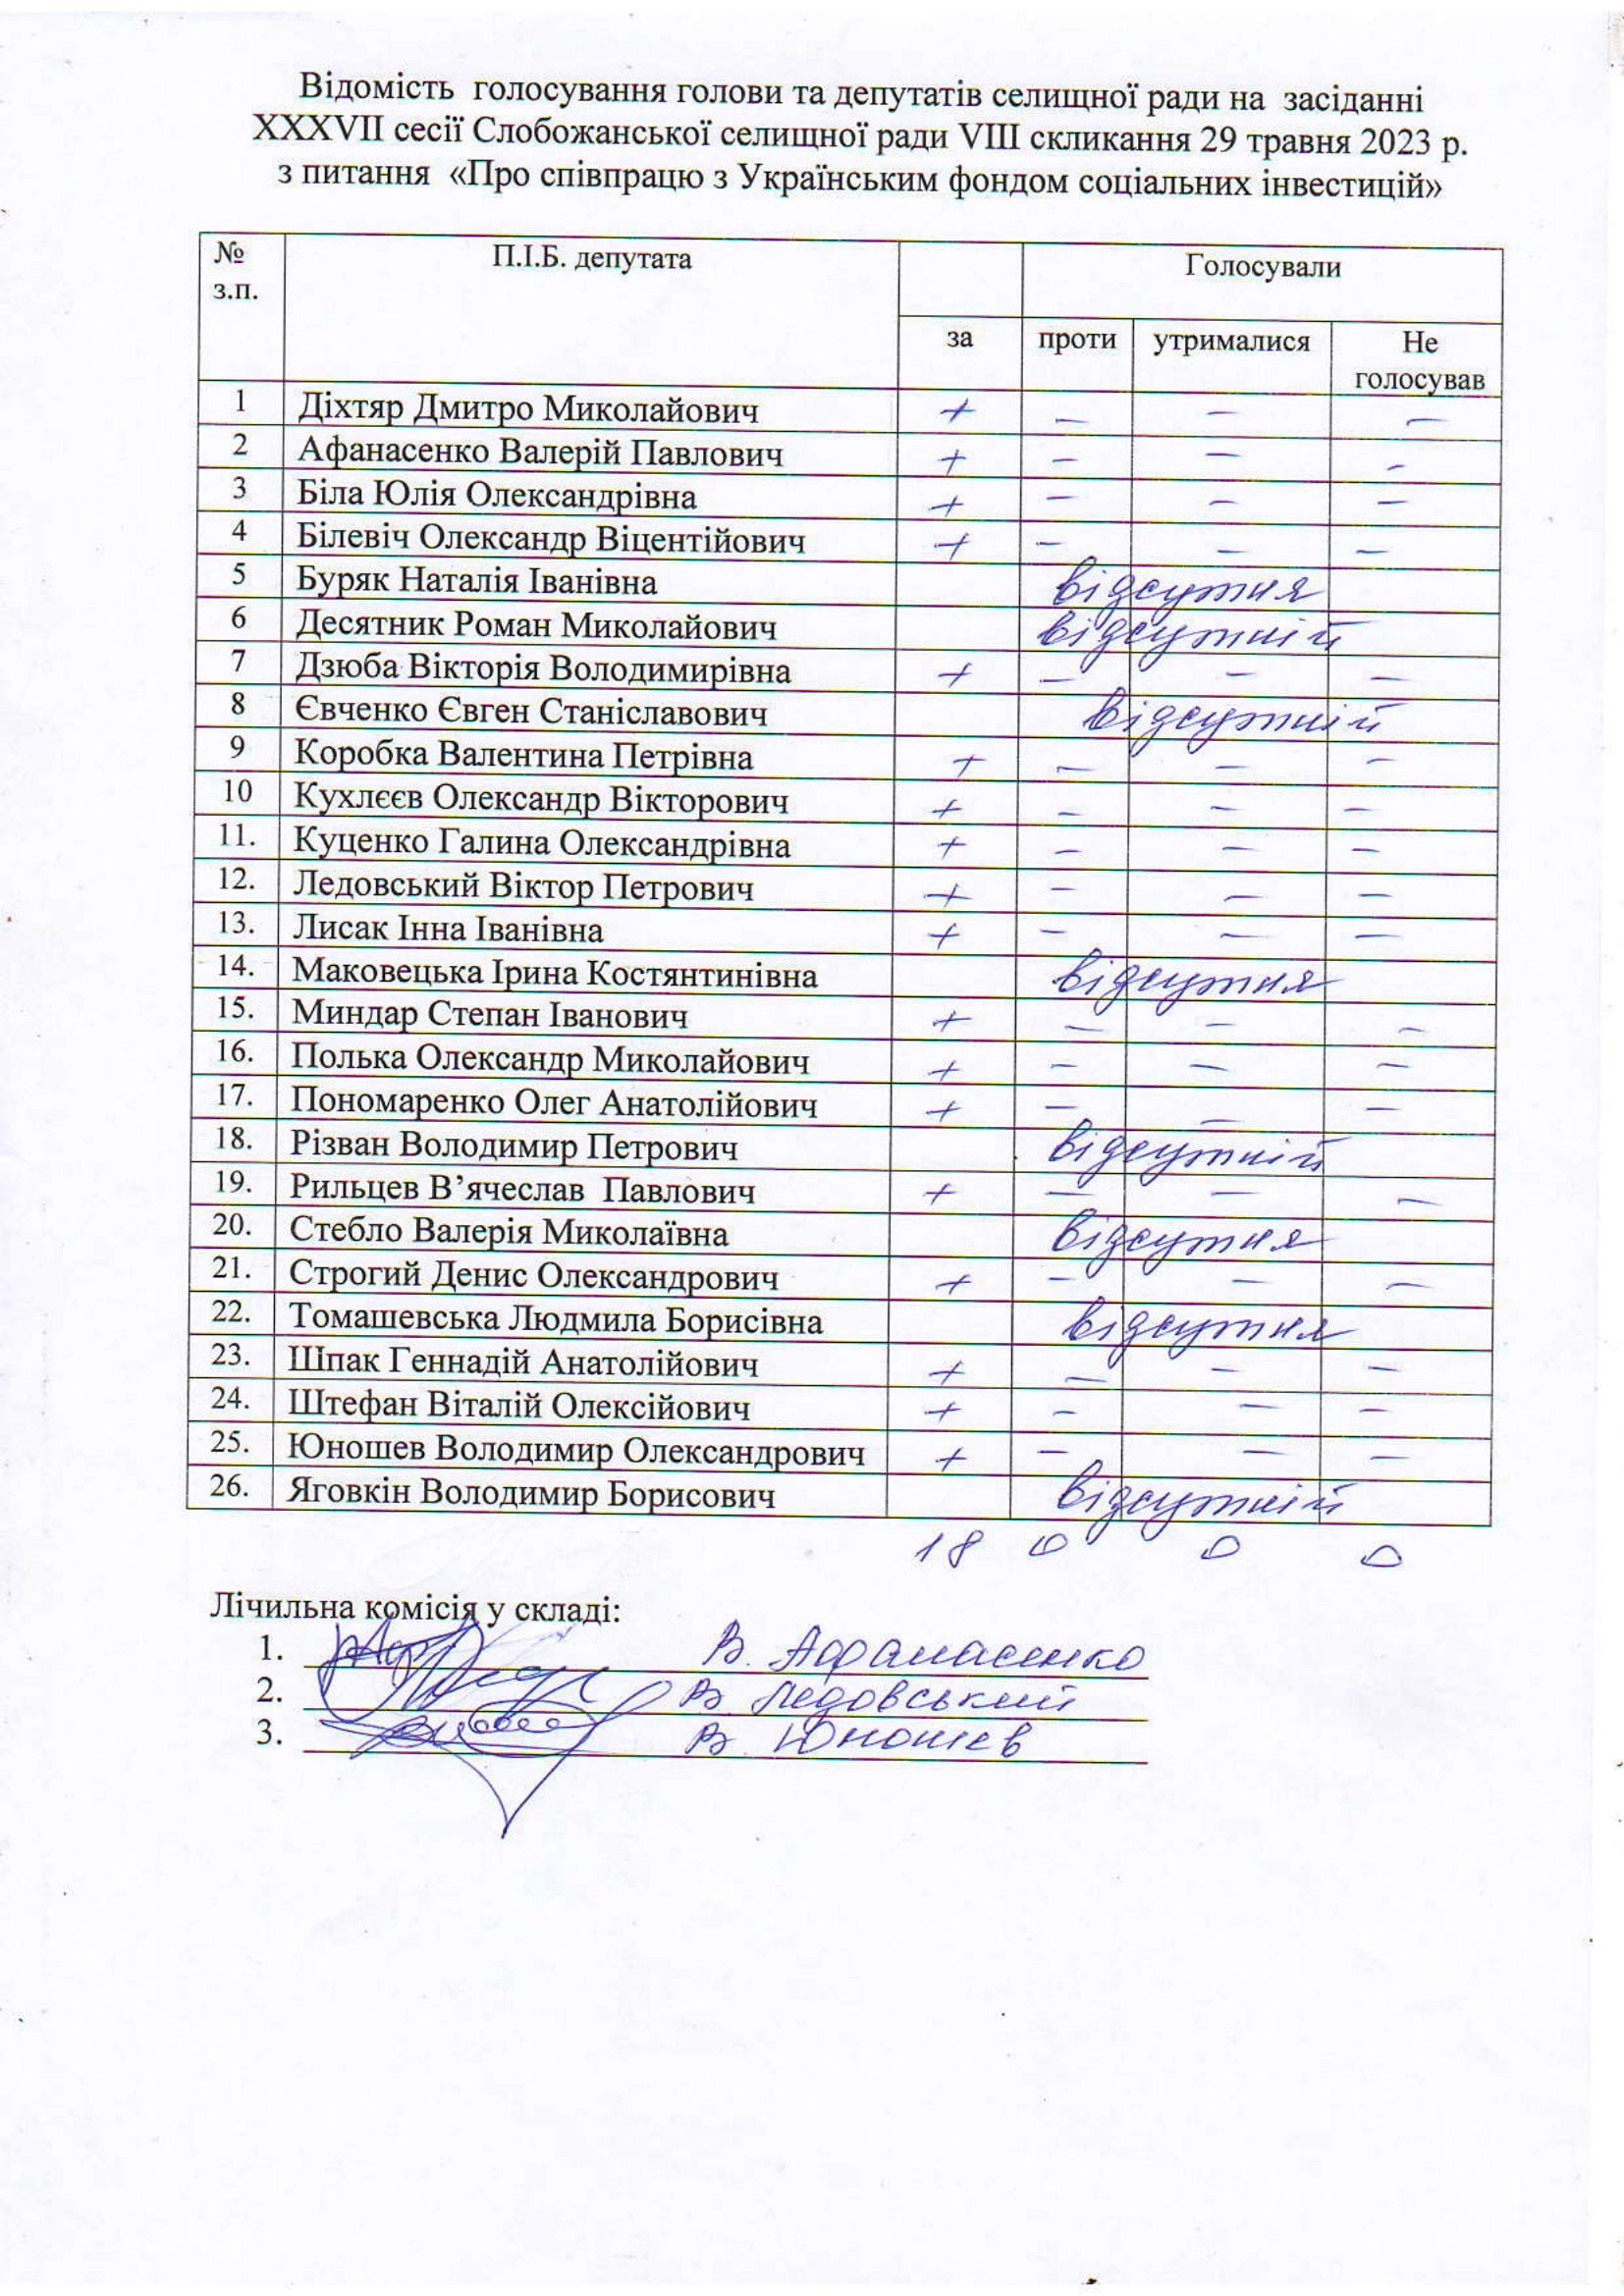 Відомість голосування голови та депутатів селищної ради на засіданні
XXXVII сесії Слобожанської селищної ради VIII скликання 29 травня 2023 р.
з питання «Про співпрацю з Українським фондом соціальних інвестицій»
№ з.п. П.І.Б. депутата Голосували
за проти утрималися Не голосував
1 Діхтяр Дмитро Миколайович + — — —
2 Афанасенко Валерій Павлович + — — —
3 Біла Юлія Олександрівна + — — —
4 Білевіч Олександр Віцентійович + — — —
5 Буряк Наталія Іванівна відсутня
6 Десятник Роман Миколайович відсутній
7 Дзюба Вікторія Володимирівна + — — —
8 Євченко Євген Станіславович відсутній
9 Коробка Валентина Петрівна + — — —
10 Кухлєєв Олександр Вікторович + — — —
11. Куценко Галина Олександрівна + — — —
12. Ледовський Віктор Петрович + — — —
13. Лисак Інна Іванівна + — — —
14. Маковецька Ірина Костянтинівна відсутня
15. Миндар Степан Іванович + — — —
16. Полька Олександр Миколайович + — — —
17. Пономаренко Олег Анатолійович + — — —
18. Різван Володимир Петрович відсутній
19. Рильцев В’ячеслав Павлович + — — —
20. Стебло Валерія Миколаївна відсутня
21. Строгий Денис Олександрович + — — —
22. Томашевська Людмила Борисівна відсутня
23. Шпак Геннадій Анатолійович + — — —
24. Штефан Віталій Олексійович + — — —
25. Юношев Володимир Олександрович + — — —
26. Яговкін Володимир Борисович відсутній
18 0 0 0
Лічильна комісія у складі:
1. В. Афанасенко
2. В. Ледовський
3. В. Юношев